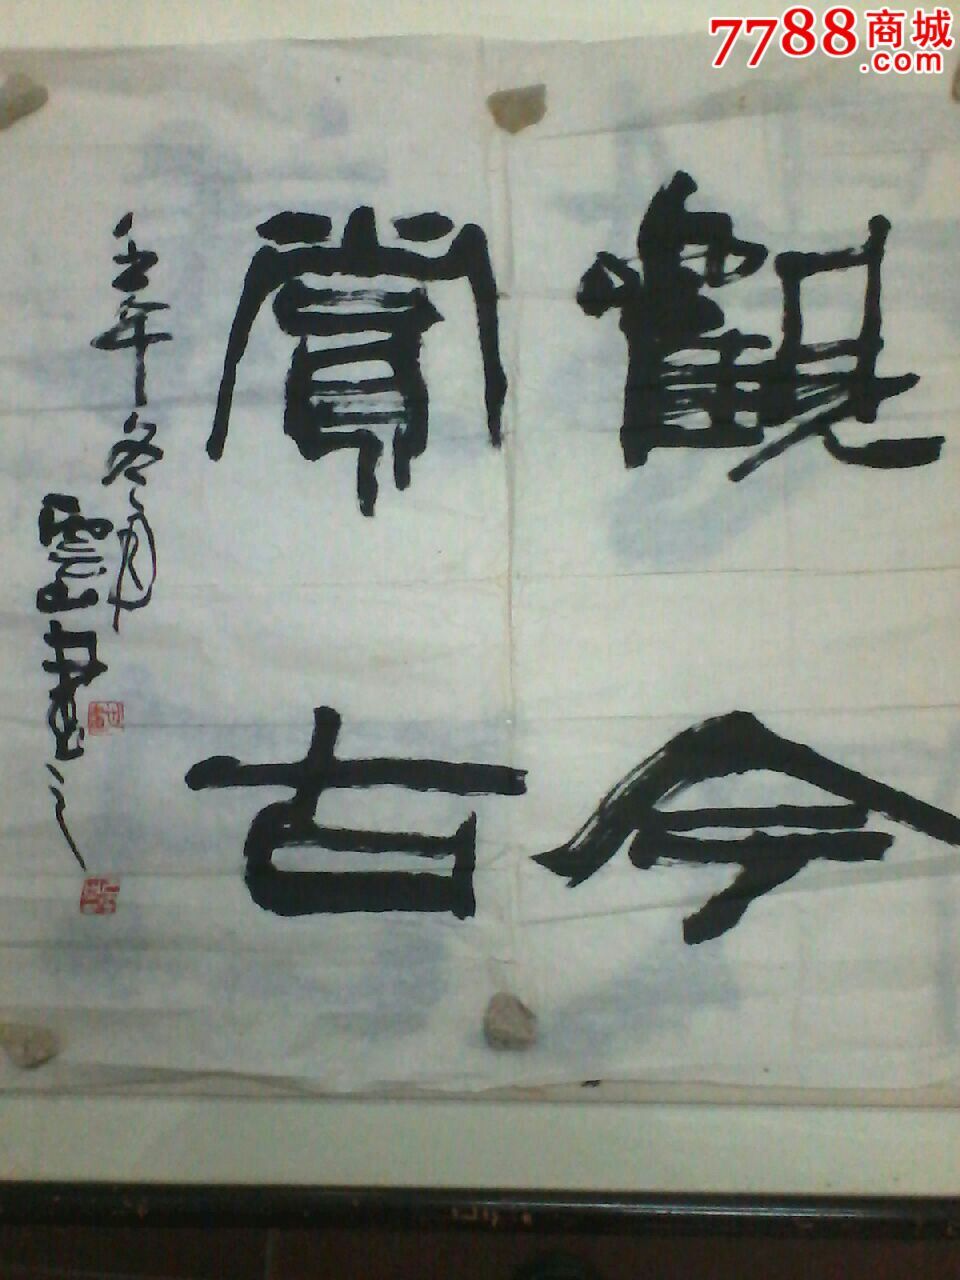 7788商城
.com
觀今
賞古
冬月
雲書之